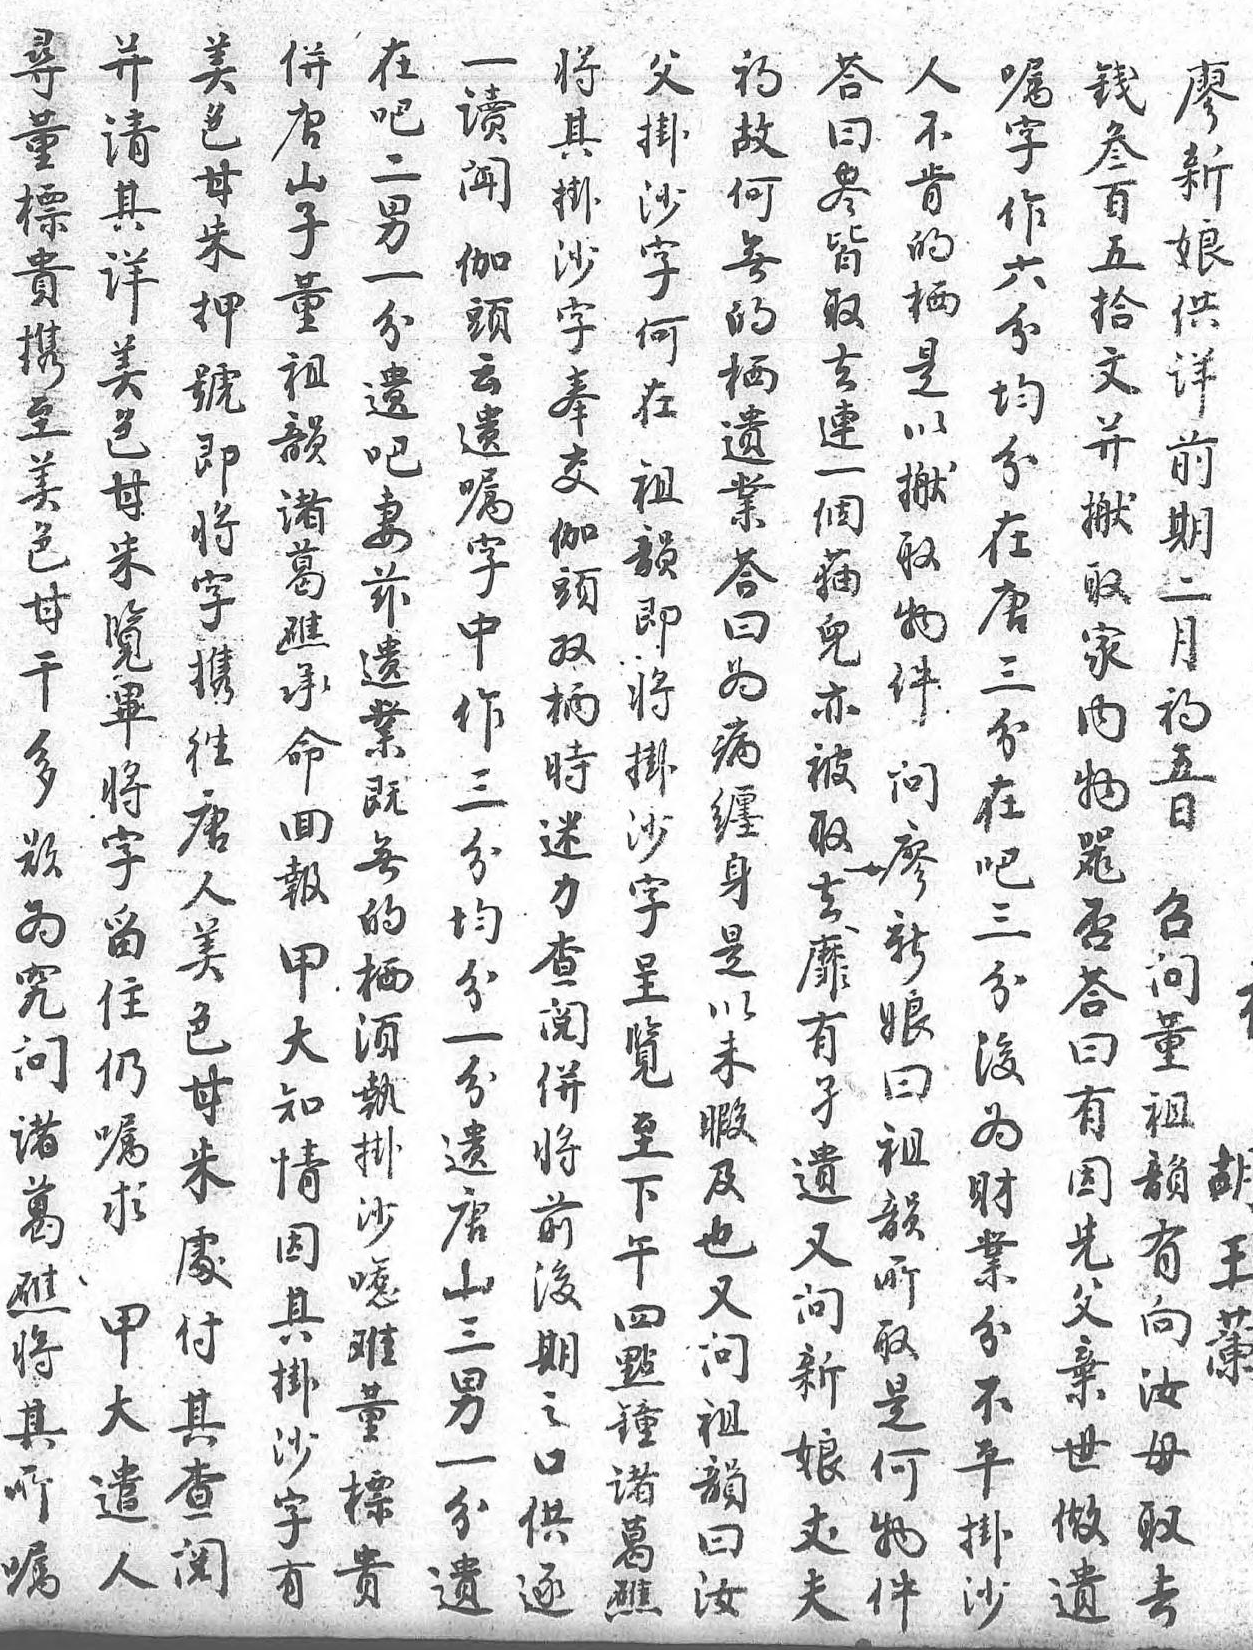 廖新娘供详前期二月初五日 召问董祖韻有向汝母取去
錢叁百五拾文并搬取家内物罷否荅曰有因先父棄世做遗
嘱字作六分均分在唐三分在吧三分後为財業分不平掛沙
人不肯的栖是以搬取物件问廖新娘曰祖韻所取是何物件
荅曰盡皆取去連一個猫兒亦被取去靡有孑遺又问新娘丈夫
初故何無的栖遺業荅曰为病纏身是以未暇及也又问祖韻曰汝
父掛沙字何在祖韻即将掛沙字呈覽至下午四點鐘诸葛礁
将其掛沙字奉交伽頭双柄時迷力查閲併将前後期之口供逐
一讀闻 伽頭云遺嘱字中作三分均分一分遺唐山三男一分遺
在吧二男一分遺吧妻兹遺業既無的栖須執掛沙嚧雖董標貴
併唐山子董祖韻诸葛礁承命囬報甲大知情因其掛沙字有
美色甘朱押號即将字携往唐人美色甘朱處付其查閲
并请其详美色甘朱覽畢将字留住仍嘱求 甲大遣人
尋董標貴携至美色甘干多欵为究问诸葛礁将其所嘱
胡
王
蘭